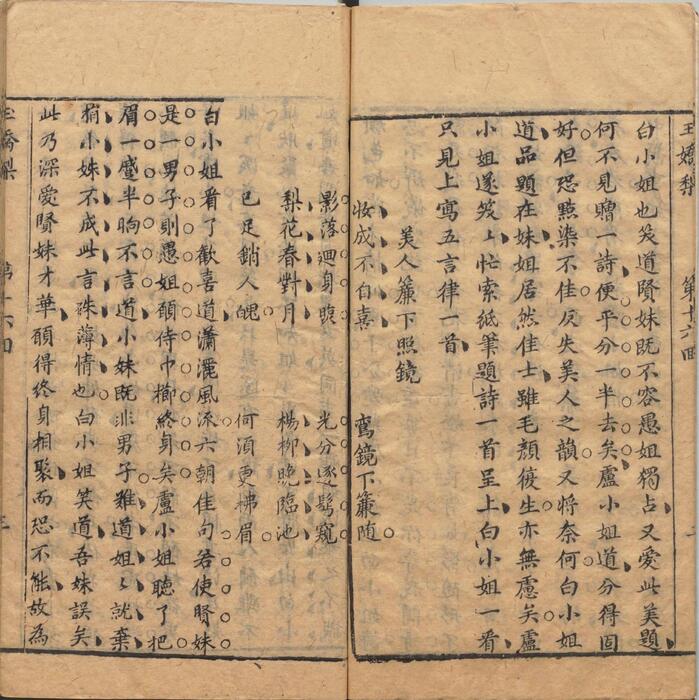 玉嬌梨　第十六回
白小姐也笑道賢妹既不容愚姐獨占又愛此美題
何不見贈一詩便平分一半去矣盧小姐道分得固
好但恐點染不佳反失美人之韻又將奈何白小姐
道品題在妹姐居然佳士雖毛顏復生亦無慮矣盧
小姐遂笑〻忙索紙筆題詩一首呈上白小姐一看
只見上寫五言律一首
美人簾下照鏡
妝成不自喜　鸞鏡下簾随
影落迴身　光分逐鬓窺
梨花春對月　楊柳晚臨池
已足銷人魄　何須更拂眉
白小姐看了歡喜道瀟灑風流六朝佳句若使賢妹
是一男子則愚姐願侍巾櫛終身矣盧小姐聽了把
眉一蹙半晌不言道小妹既非男子難道姐〻就棄
捐小妹不成此言殊薄情也白小姐笑道吾妹誤矣
此乃深愛賢妹才華願得終身相聚而恐不能故為
玉嬌梨　第十六回